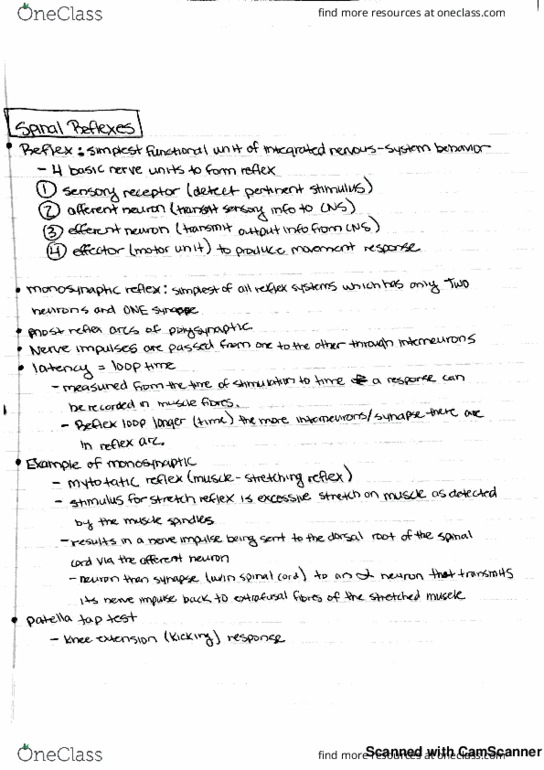 OneClass
find more resources at oneclass.com
Spinal Reflexes
• Reflex: simplest functional unit of integrated nervous-system behavior
- 4 basic nerve units to form reflex
① sensory receptor (detect pertinent stimulus)
② afferent neuron (transmit sensory info to CNS)
③ efferent neuron (transmit output info from CNS)
④ effector (motor unit) to produce movement response
• monosynaptic reflex: simplest of all reflex systems which has only TWO
neurons and ONE synapse
• most reflex arcs of polysynaptic
• Nerve impulses are passed from one to the other through interneurons
• latency = loop time
- measured from the time of stimulation to time a response can
be recorded in muscle fibres.
- Reflex loop longer (time) the more interneurons/synapse there are
in reflex arc.
• Example of monosynaptic
- mytotatic reflex (muscle-stretching reflex)
- stimulus for stretch reflex is excessive stretch on muscle as detected
by the muscle spindles
- results in a nerve impulse being sent to the dorsal root of the spinal
cord via the afferent neuron
- neuron than synapse (w/in spinal cord) to an α neuron that transmits
its nerve impulse back to extrafusal fibres of the stretched muscle
• patella tap test
- knee extension (kicking) response
OneClass
find more resources at oneclass.com
Scanned with CamScanner